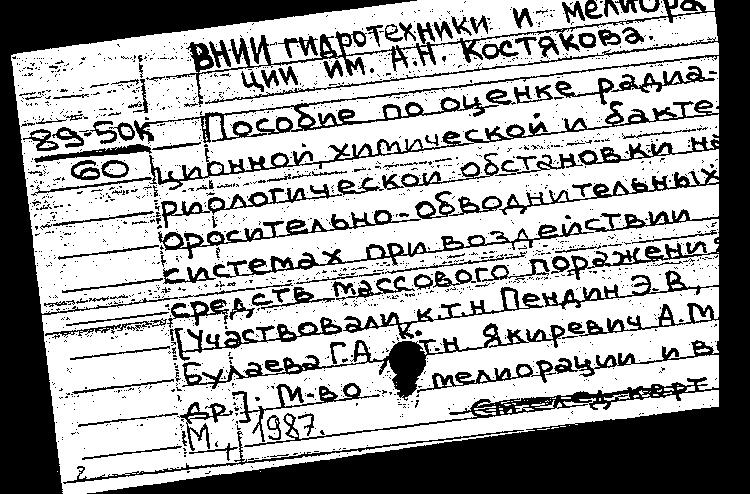 ВНИИ гидротехники и мелиора
ции им. А.Н. Костякова.
89-50к
60
Пособие по оценке радиа-
ционной, химической и бакте-
риологической обстановки на
оросительно-обводнительных
системах при воздействии
средств массового поражения
[Участвовали к.т.н Пендин Э.В,
Булаева Г.А, к.т.н Якиревич А.М
др.]; М-во мелиорации и в
М., 1987.
См. след. карт
2